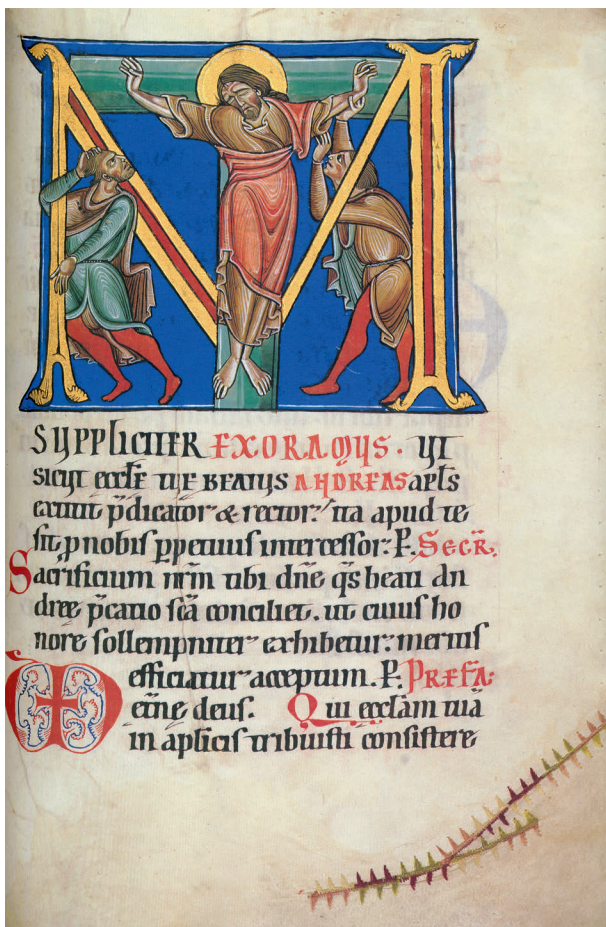 M
SUPPLICITER EXORAMUS · UT
SICUT eccłe TUE BEATUS ANDREAS apłs
extitit p̄dicator & rector: ita apud te
sit p nobis ppetuus intercessor: P. SECR̄.
Sacrificium nr̄m tibi dn̄e q̄s beati An
dreę p̄catio sc̄a conciliet. ut cuius ho
nore sollempniter exhibetur: meritis
efficiatur acceptum. P. PREFA:
etn̄e deus. Qui eccłam tuā
in ap̄licis tribuisti consistere